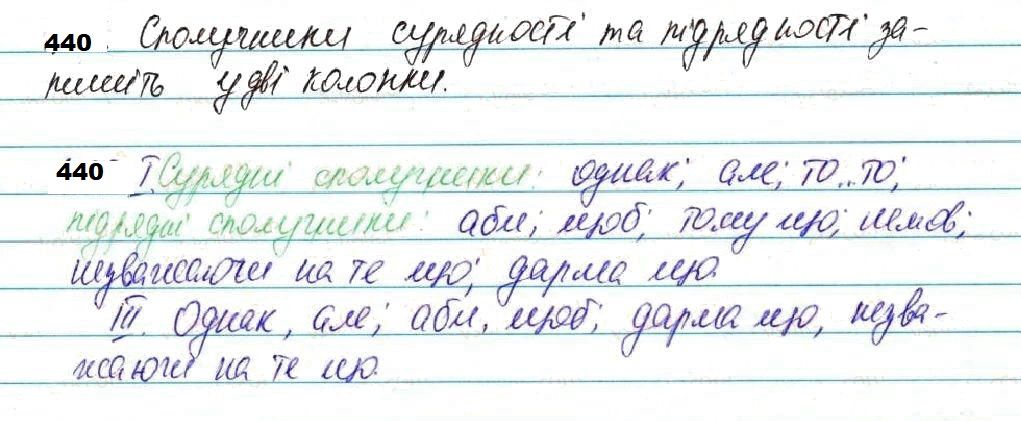 440 Сполучники сурядності та підрядності за-
пишіть у дві колонки.
440 I. Сурядні сполучники: однак; але; то..то;
підрядні сполучники: аби; щоб; тому що; немов;
незважаючи на те що; дарма що.
III. Однак, але; аби, щоб; дарма що, незва-
жаючи на те що.